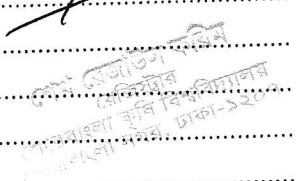 শেখ রেজাউল করিম
রেজিস্ট্রার
শেরেবাংলা কৃষি বিশ্ববিদ্যালয়
শেরেবাংলা নগর, ঢাকা-১২০৭